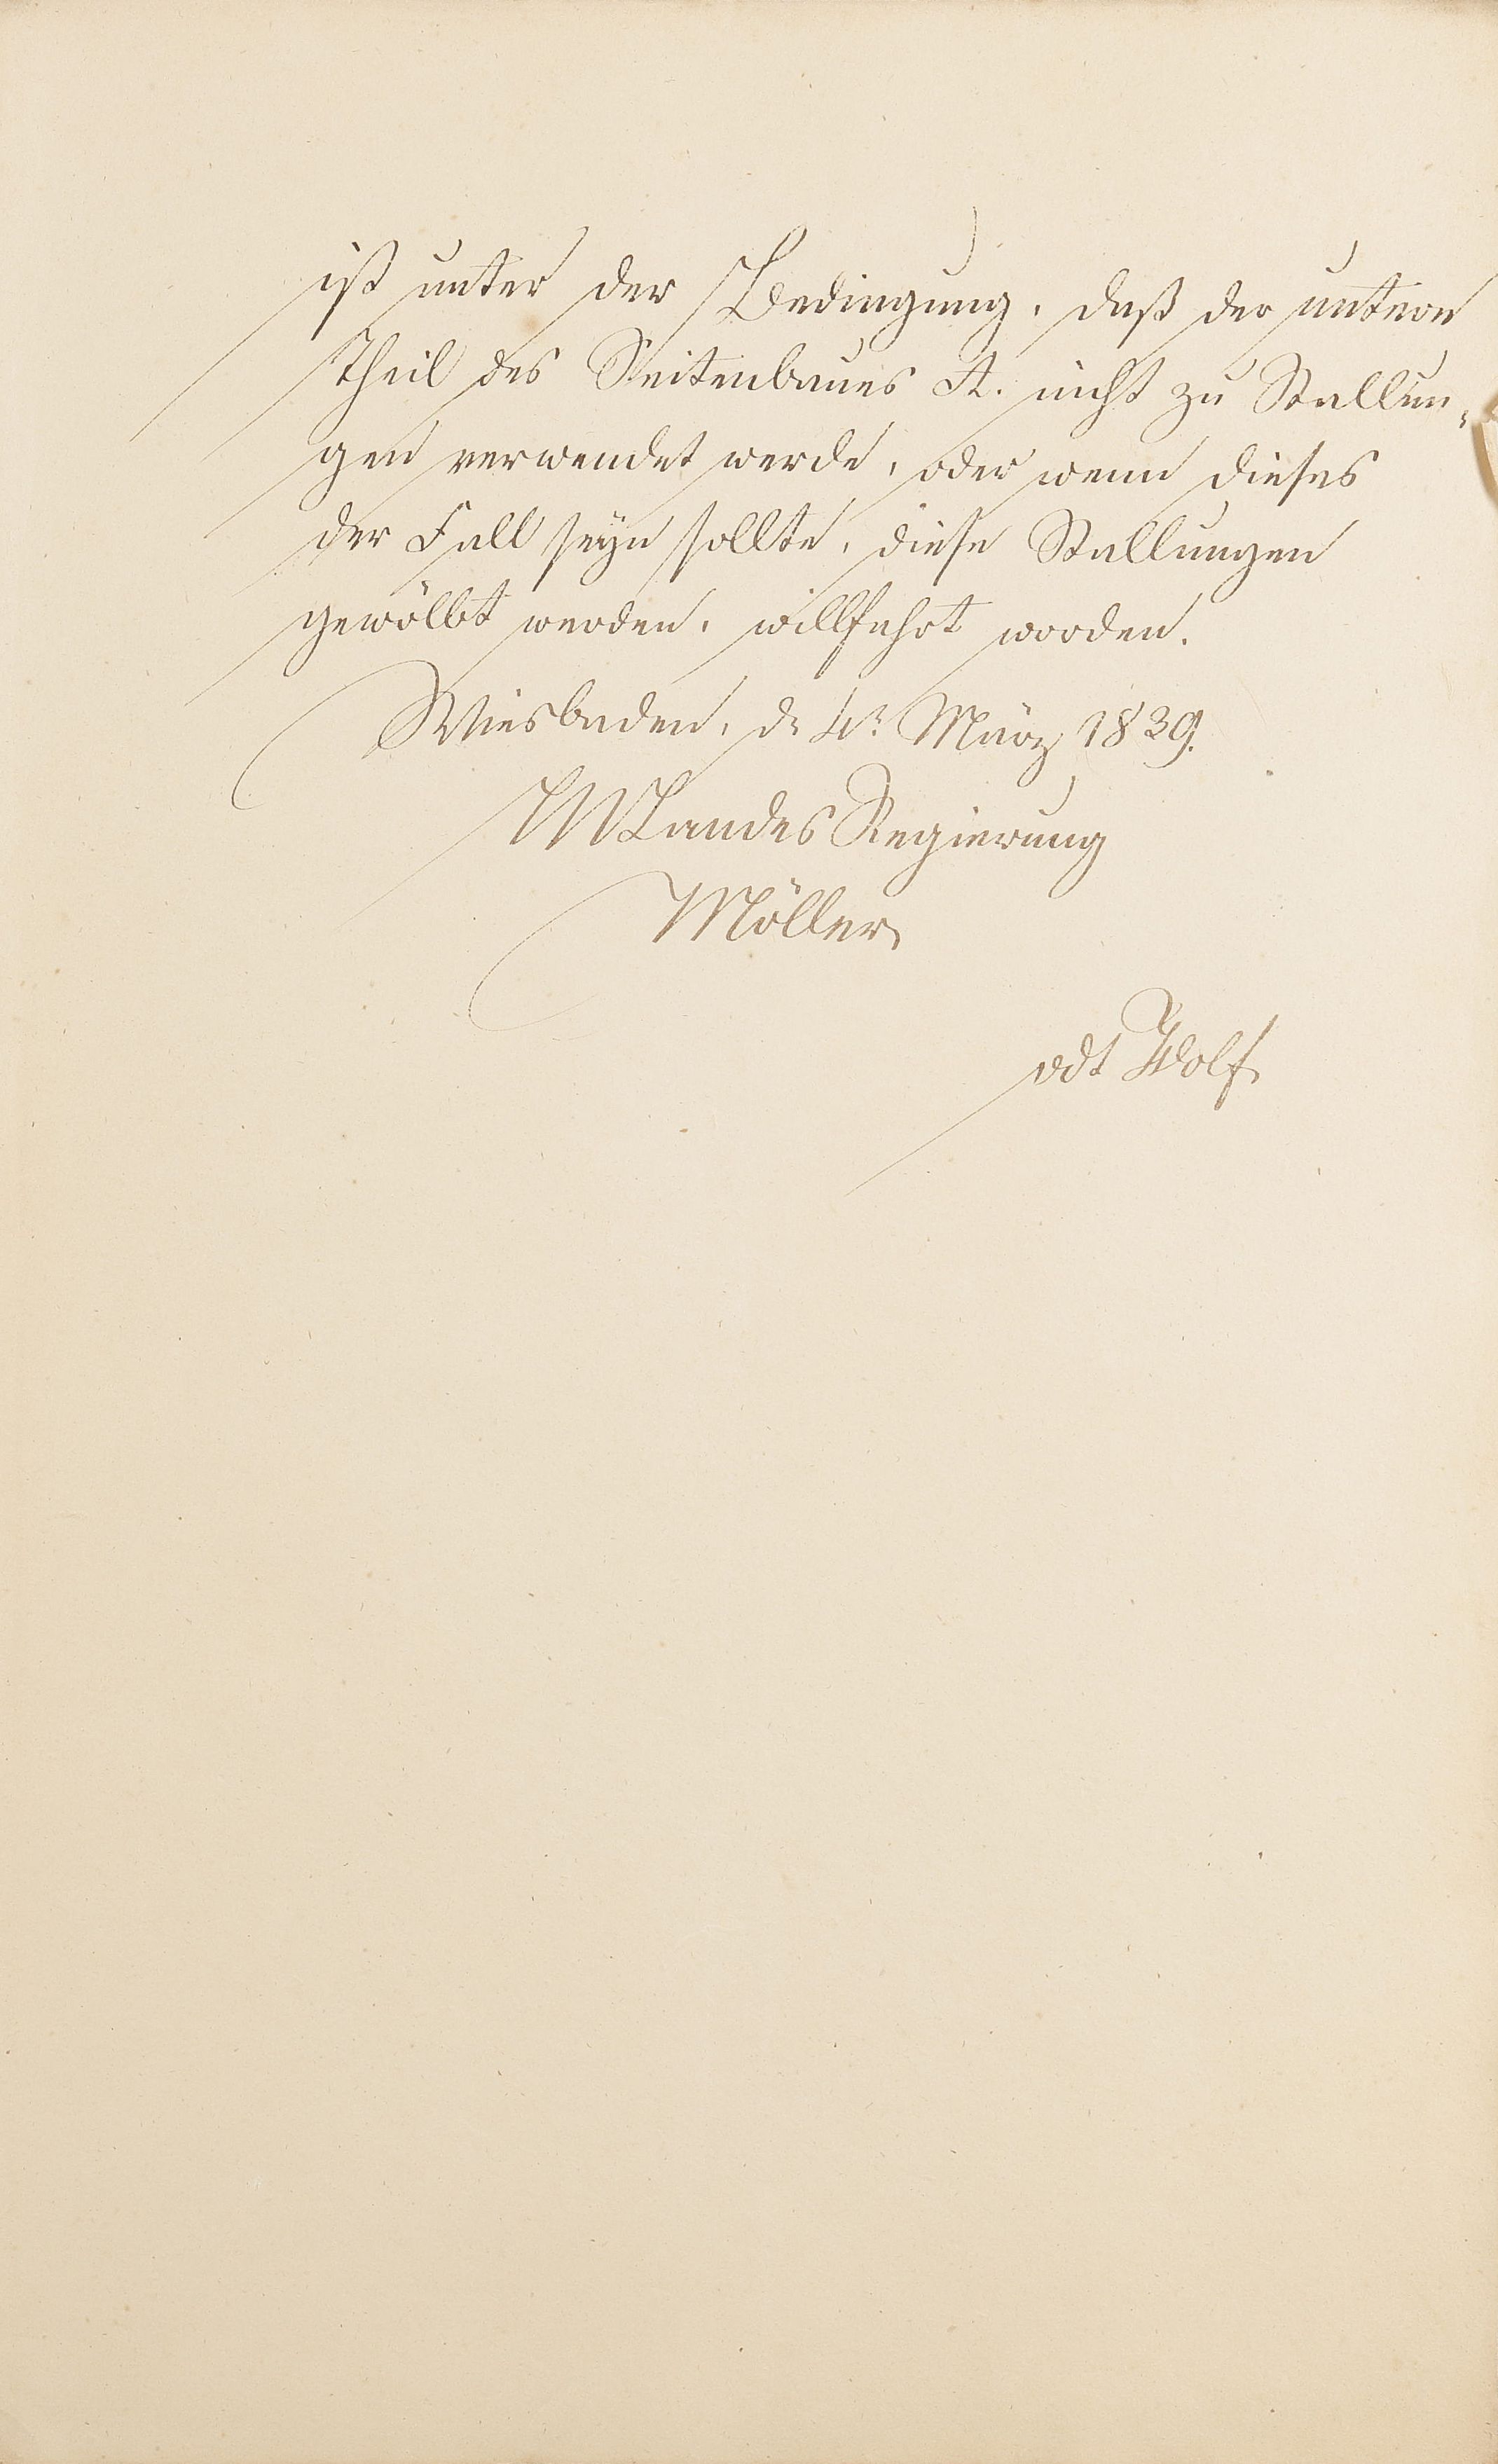 ist unter der Bedingung, daß der untere
Theil des Seitenbaues A. nicht zu Stallun-
gen verwendet werde, oder wenn dieses
der Fall seyn sollte, diese Stallungen
gewölbt werden, willfahrt worden.
Wiesbaden, d. 4n. März 1839.
Landes Regierung
Möller
vdt Wolf